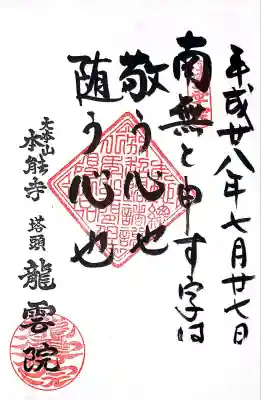 平成廿八年七月廿七日
南無と申す字は
敬う心也
随う心也
大本山
本能寺
塔頭
龍雲院